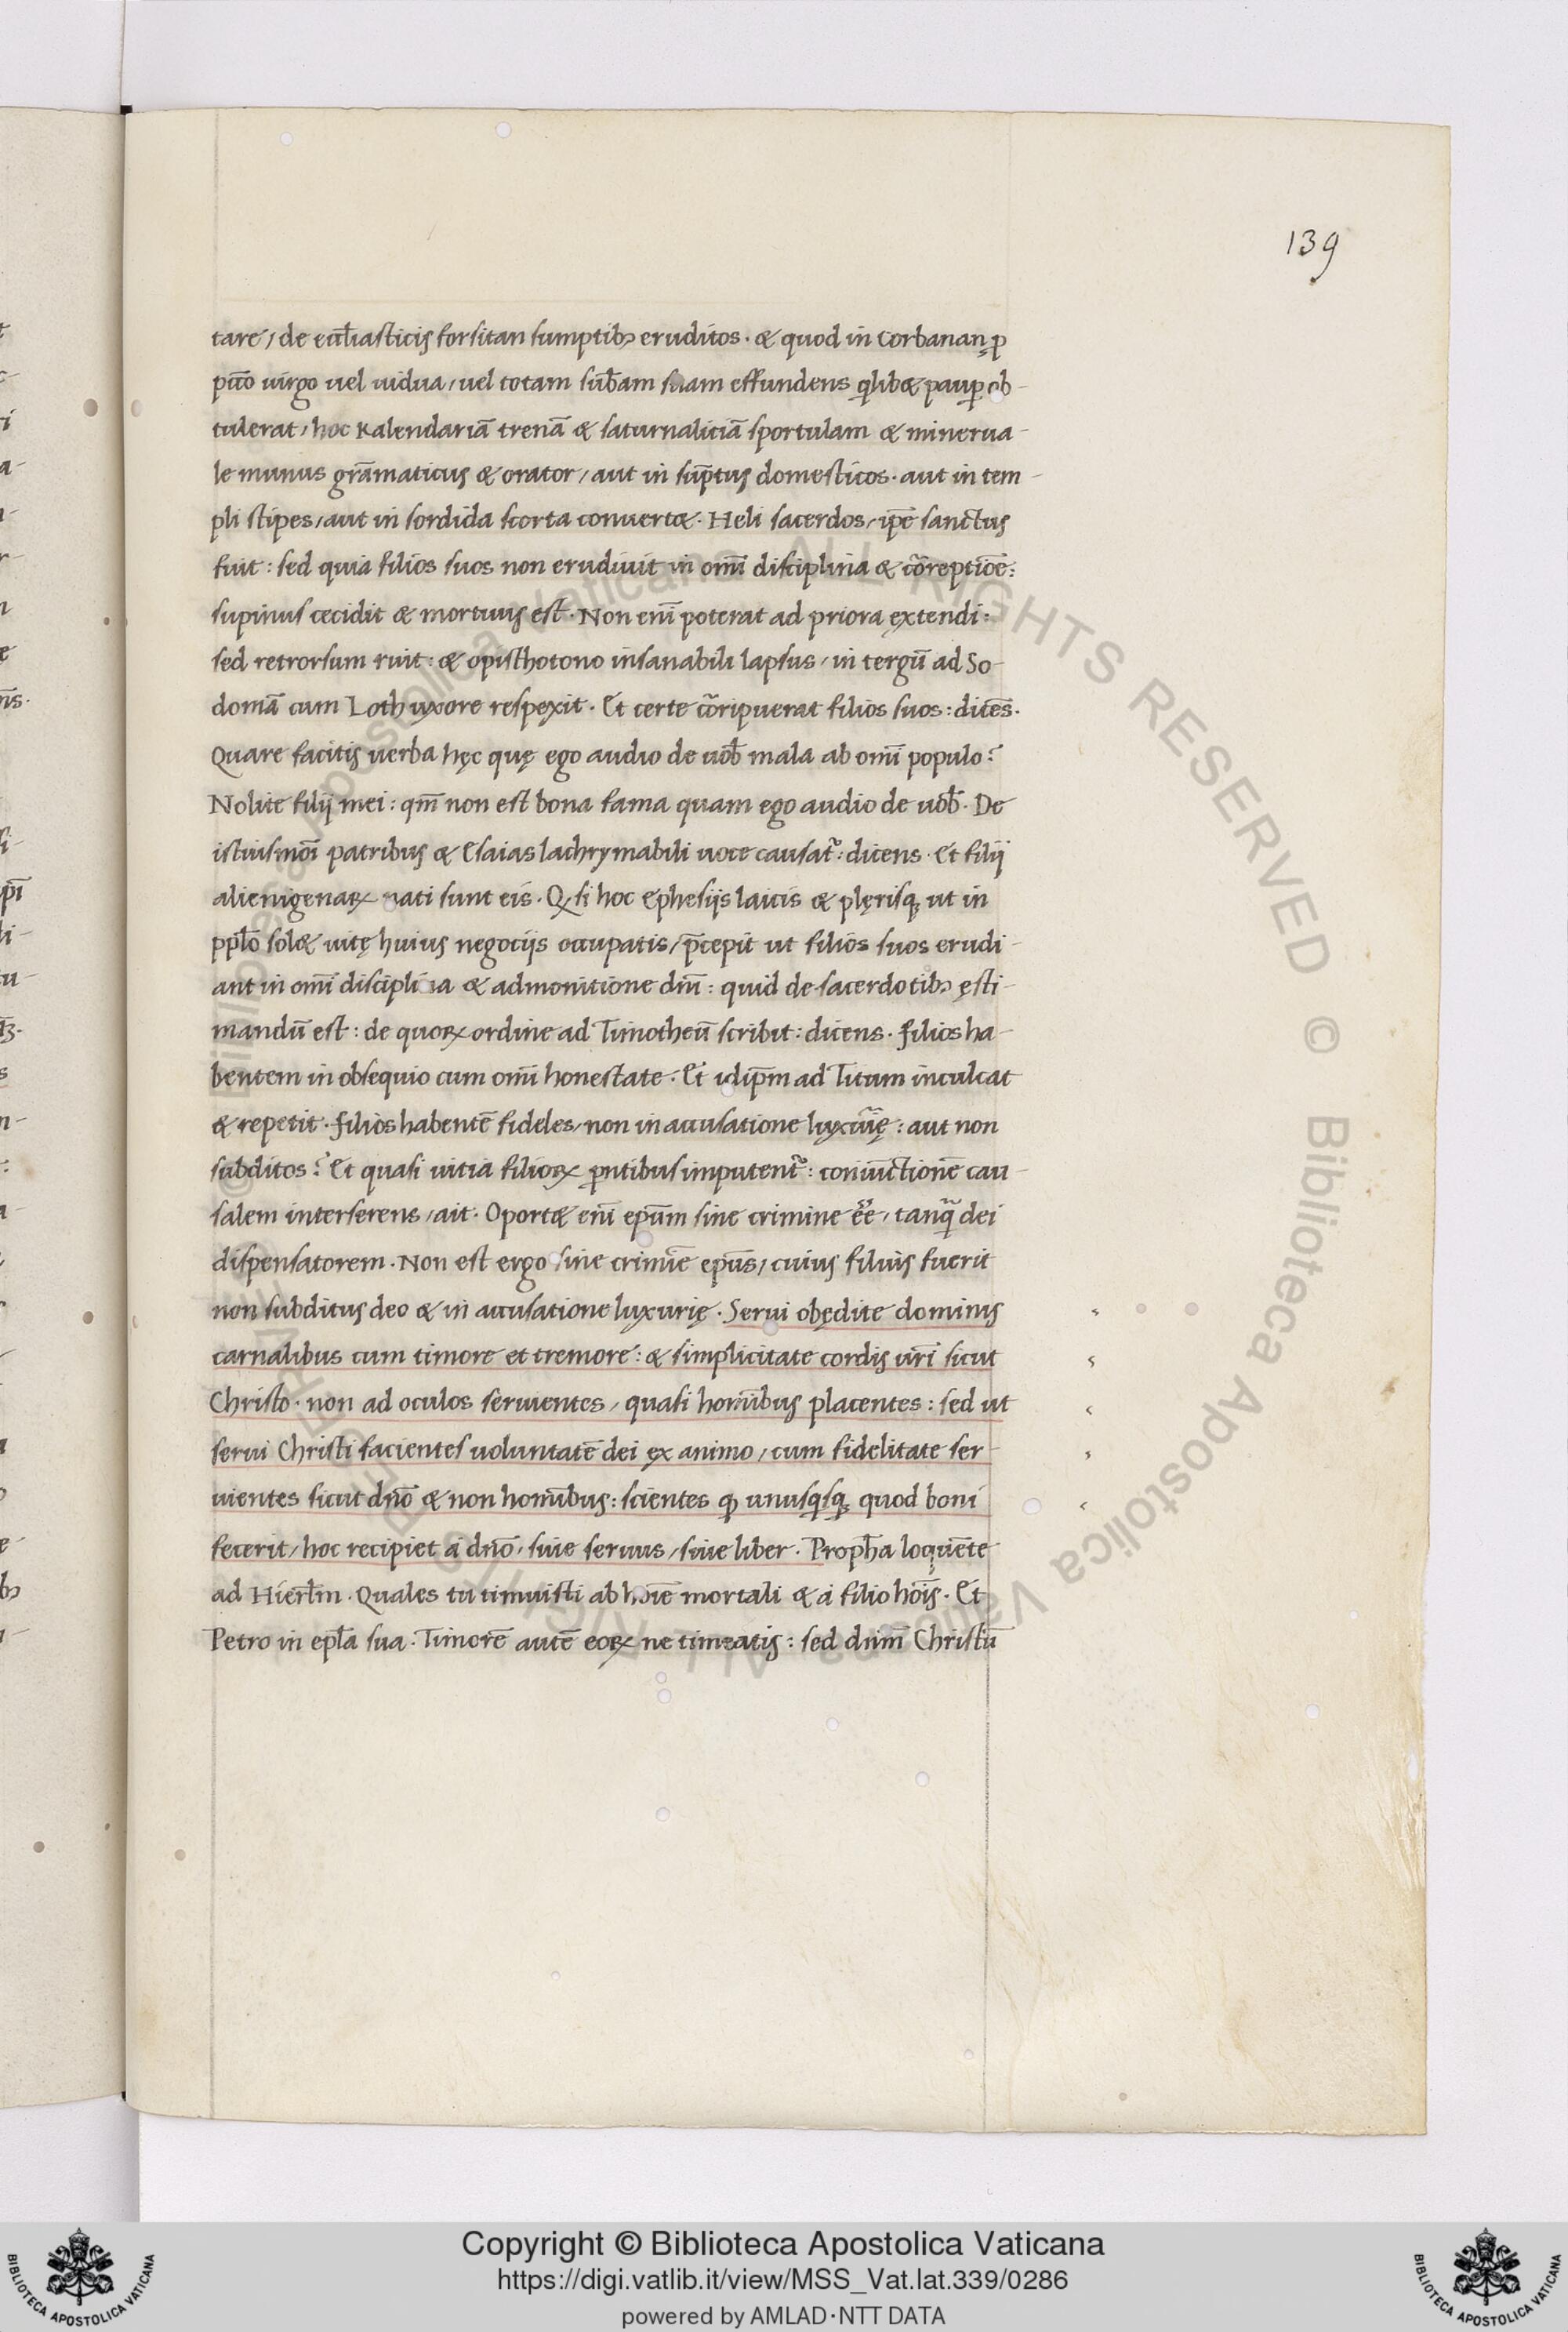 139
tare, de eccl̄iasticis forsitan sumptibꝫ eruditos. & quod in Corbanan, ꝓ
pctō uirgo uel uidua, uel totam sub̄am suam effundens qͥlib& paup̱ ob-
tulerat, hoc Kalendariā trenā & saturnaliciā sportulam & minerua-
le munus grāmaticus & orator, aut in sūptus domesticos. aut in tem-
pli stipes, aut in sordida scorta conuert&. Heli sacerdos, ip̄e sanctus
fuit: sed quia filios suos non erudiuit in om̄i disciplina & cōreptiōe:
supinus cecidit & mortuus est. Non eni̅ poterat ad priora extendi:
sed retrorsum ruit: & opisthotono insanabili lapsus, in tergū ad So-
domā cum Loth uxore respexit. Et certe cōripuerat filios suos: dicēs.
Quare facitis uerba hęc quę ego audio de uob̄ mala ab om̄i populo?
Nolite filij mei: qm̄ non est bona fama quam ego audio de uob̄. De
istiusmōi patribus & Esaias lachrymabili uoce causat᷑: dicens. Et filij
alienigenaꝝ nati sunt eis. Qꝫ si hoc Ephesijs laicis & plęrisqꝫ ut in
pp̄lo sol& uitę huius negocijs occupatis, p̄cepit ut filios suos erudi-
ant in om̄i disciplina & admonitione dn̄i: quid de sacerdotibꝫ ęsti-
mandū est: de quoꝝ ordine ad Timotheū scribit: dicens. filios ha-
bentem in obsequio cum om̄i honestate. Et idip̄m ad Titum inculcat
& repetit. filios habentē fideles, non in accusatione luxūię: aut non
subditos? Et quasi uitia filioꝝ pn̄tibus imputent᷑: coniūctionē cau-
salem interserens, ait. Oport& eni̅ ep̄um sine crimine ēe, tanqͣ dei
dispensatorem. Non est ergo sine crimīe ep̄us, cuius filius fuerit
non subditus deo & in accusatione luxurię. Serui obędite dominis
carnalibus cum timore et tremore: & simplicitate cordis ur̄i sicut
Christo. non ad oculos seruientes, quasi homībus placentes: sed ut
serui Christi facientes uoluntatē dei ex animo, cum fidelitate ser-
uientes sicut dn̄o & non homībus: scientes qꝫ unusqͥsqꝫ quod boni
fecerit, hoc recipiet a dn̄o, siue seruus, siue liber. Proph̄a loquēte
ad Hierl̄m. Quales tu timuisti ab hoīe mortali & a filio hoīs. Et
Petro in epl̄a sua. Timorē autē eoꝝ ne timeatis: sed dnm̄ Christū
Copyright © Biblioteca Apostolica Vaticana
https://digi.vatlib.it/view/MSS_Vat.lat.339/0286
powered by AMLAD·NTT DATA